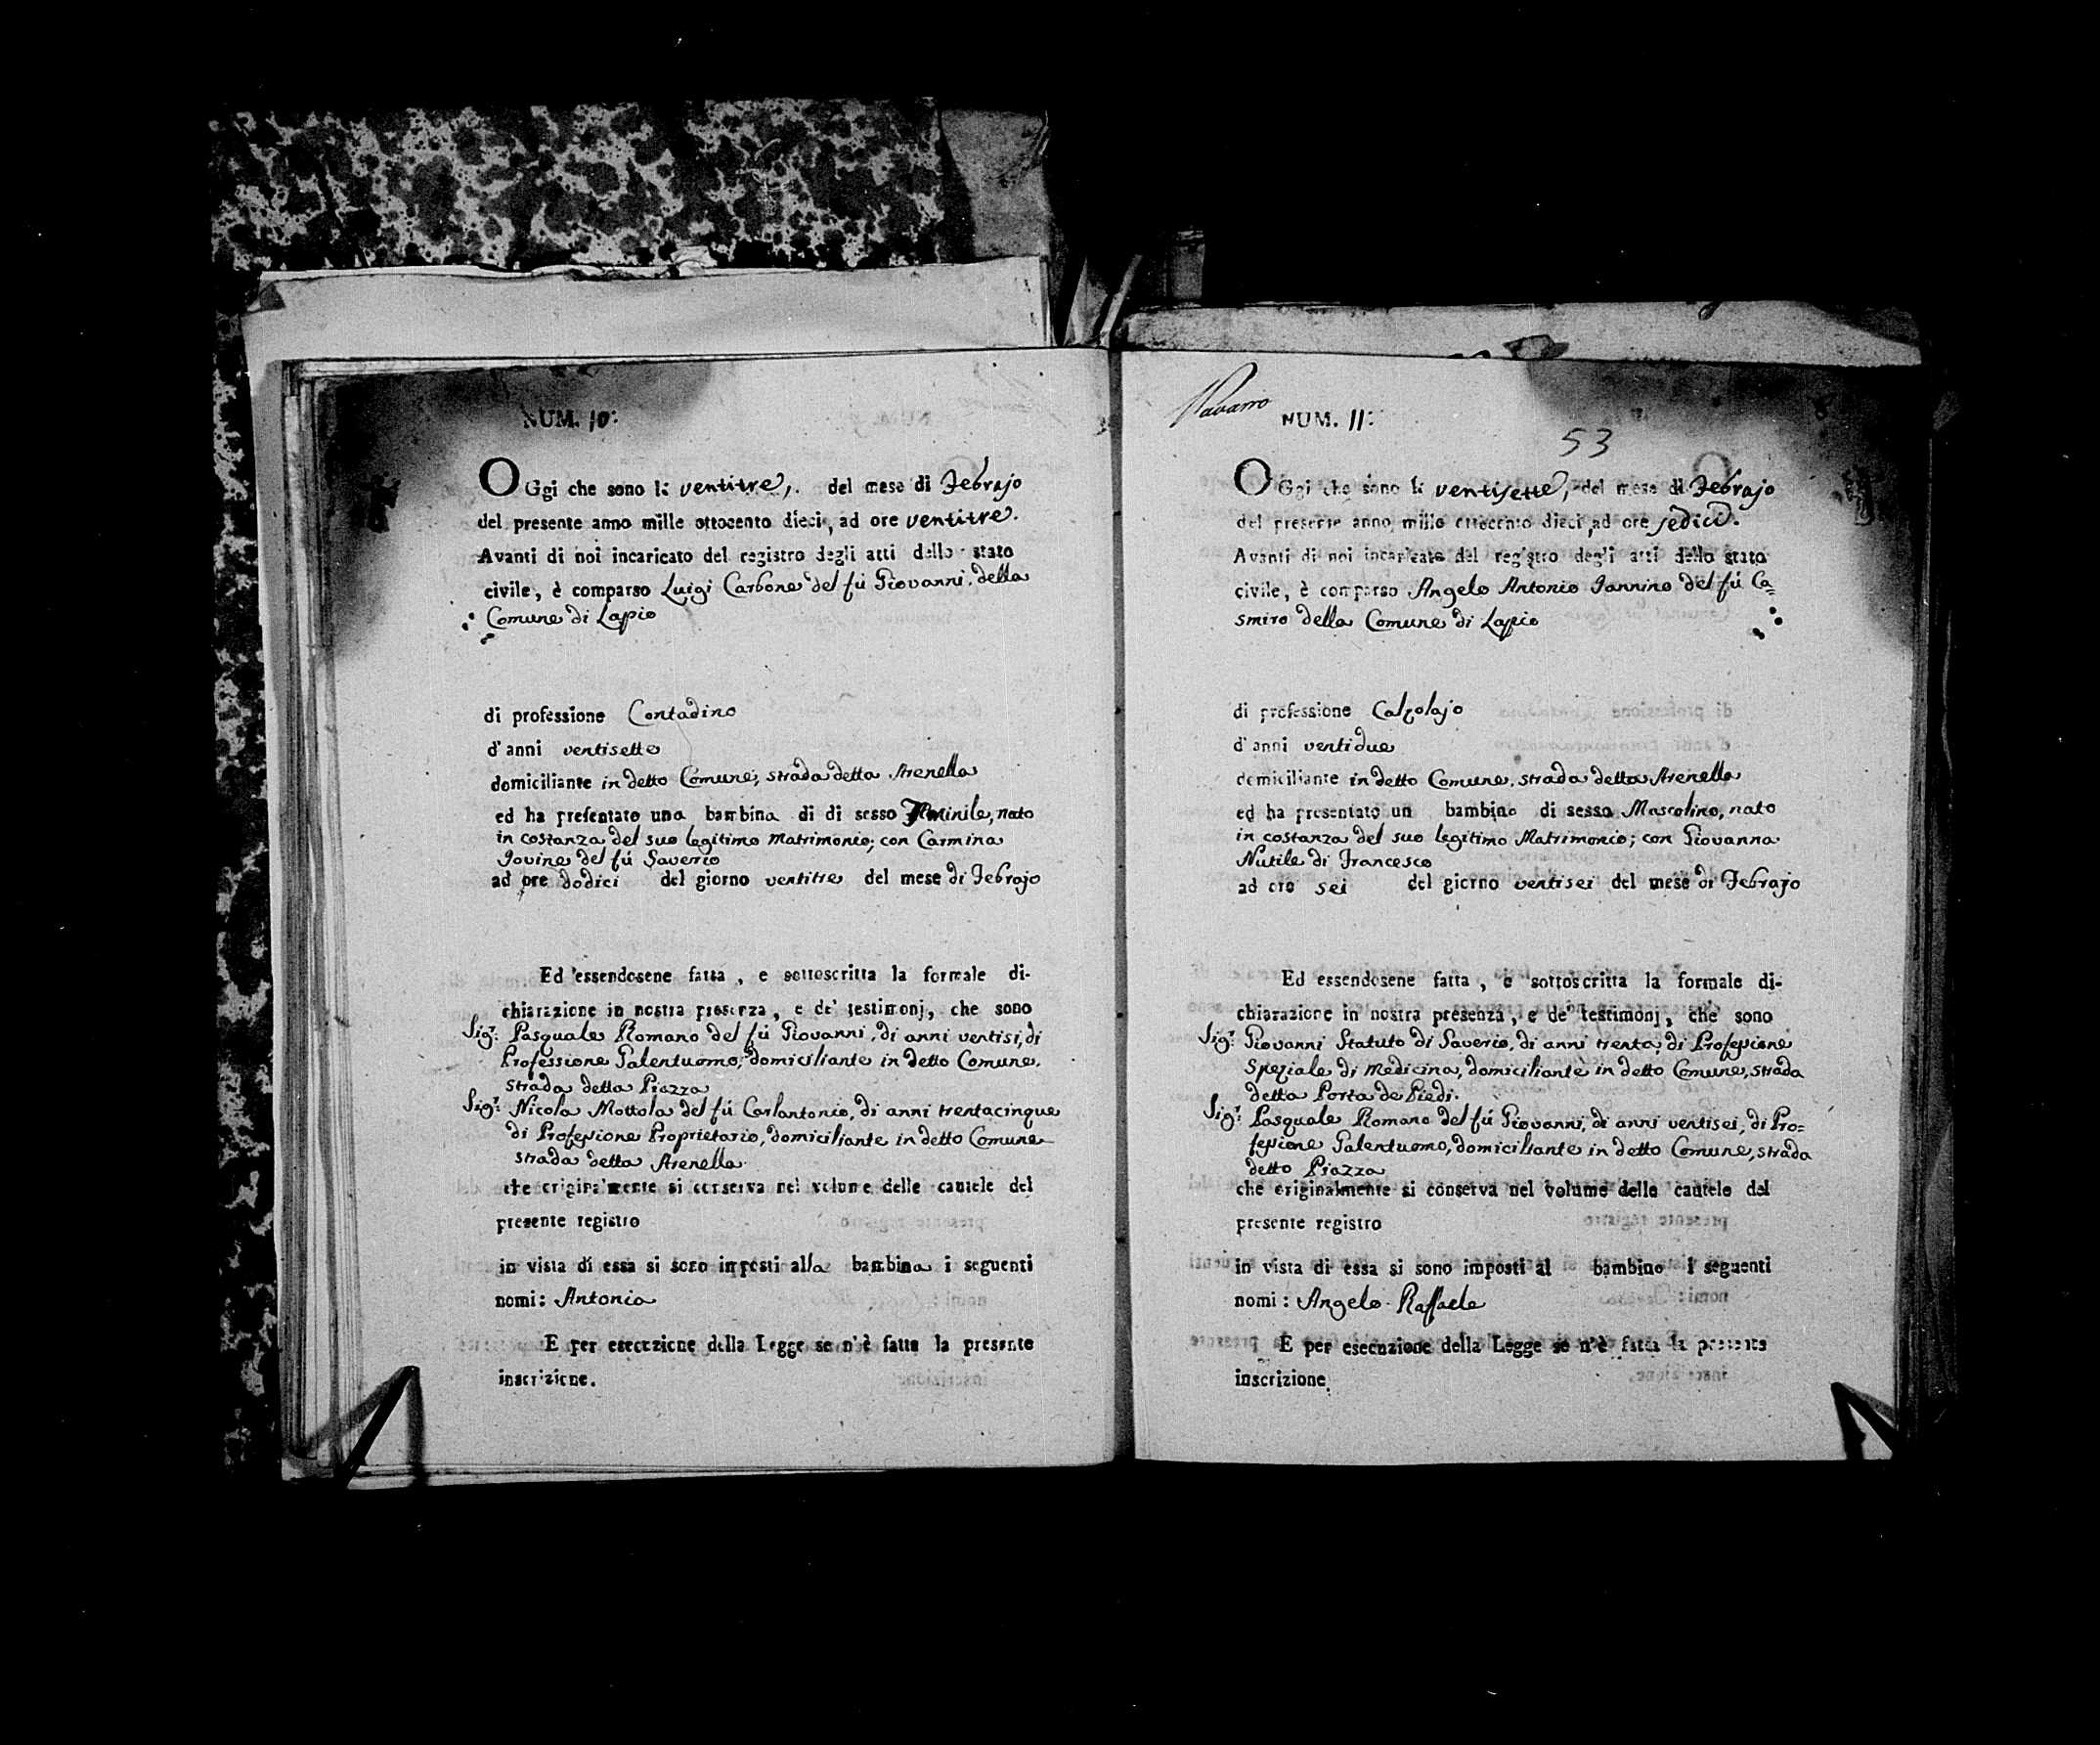 NUM. 10:
OGgi che sono li ventitre, del mese di Febrajo
del presente anno mille ottocento dieci, ad ore ventitre.
Avanti di noi incaricato del registro degli atti dello stato
civile, è comparso Luigi Carbone del fú Giovanni, della
Comune di Lapio
di professione Contadino
d'anni ventisette
domiciliante in detto Comune, strada detta Arenella
ed ha presentato una bambina di di sesso Feminile, nato
in costanza del suo legitimo Matrimonio; con Carmina
Iovine del fú Saverio
ad ore dodici del giorno ventitre del mese di Febrajo
Ed essendosene fatta, e sottoscritta la formale di-
chiarazione in nostra presenza, e de' testimonj, che sono
Sig.r Pasquale Romano del fú Giovanni, di anni ventisi, di
Professione Galentuomo, domiciliante in detto Comune,
strada detta Piazza
Sig.r Nicola Mottola del fú Carlantonio, di anni trentacinque
di Professione Proprietario, domiciliante in detto Comune
strada detta Arenella
che originalmente si conserva nel volume delle cautele del
presente registro
in vista di essa si sono imposti alla bambina i seguenti
nomi: Antonia
E per esecuzione della Legge se n'è fatta la presente
inscrizione.
Navarro
NUM. 11:
53
OGgi che sono li ventisette, del mese di Febrajo
del presente anno mille ottocento dieci, ad ore sedici.
Avanti di noi incaricato del registro degli atti dello stato
civile, è comparso Angelo Antonio Iannino del fú Ca=
smiro della Comune di Lapio
di professione Calzolajo
d'anni ventidue
domiciliante in detto Comune, strada detta Arenella
ed ha presentato un bambino di sesso Mascolino, nato
in costanza del suo legitimo Matrimonio; con Giovanna
Nutile di Francesco
ad ore sei del giorno ventisei del mese di Febrajo
Ed essendosene fatta, e sottoscritta la formale di-
chiarazione in nostra presenza, e de' testimonj, che sono
Sig.r Giovanni Statuto di Saverio, di anni trenta, di Professione
Speziale di Medicina, domiciliante in detto Comune, strada
detta Porta de Piedi.
Sig.r Pasquale Romano del fú Giovanni, di anni ventisei, di Pro=
fessione Galentuomo, domiciliante in detto Comune, strada
detto Piazza
che originalmente si conserva nel volume delle cautele del
presente registro
in vista di essa si sono imposti al bambino i seguenti
nomi: Angelo Raffaele
E per esecuzione della Legge se n'è fatta la presente
inscrizione.